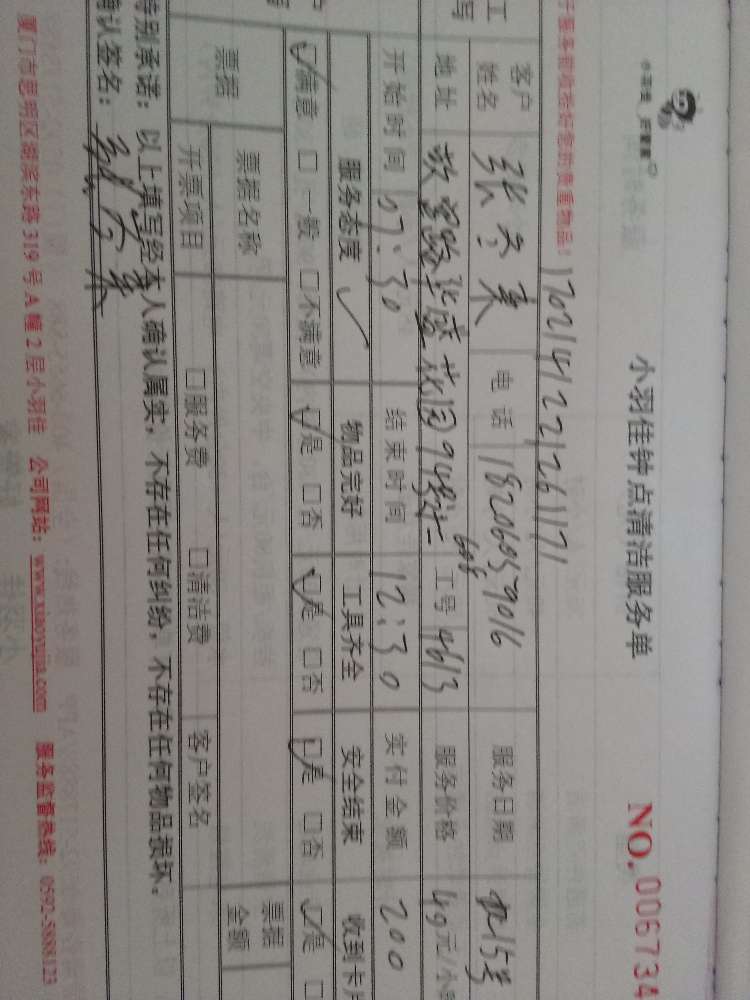 小羽佳 好管家
小羽佳钟点清洁服务单
NO. 006734
服务前收拾好您的贵重物品！ 1702141221261171
客户姓名 张 电话 18206059016 服务日期 15号
地址 花园94号 608 工号 4613 服务价格 49元/小
开始时间 07:30 结束时间 12:30 实付金额 200
服务态度 物品完好 工具齐全 安全结束 收到卡片
☑满意 □一般 □不满意 ☑是 □否 ☑是 □否 ☑是 □否 ☑是 □
票据 票据名称 票据金额
开票项目 □服务费 □清洁费 客户签名
特别承诺：以上填写经本人确认属实，不存在任何纠纷，不存在任何物品损坏。
确认签名：
厦门市思明区湖滨东路319号A幢2层小羽佳 公司网站：www.xiaoyujia.com 服务监督热线：0592-5888123